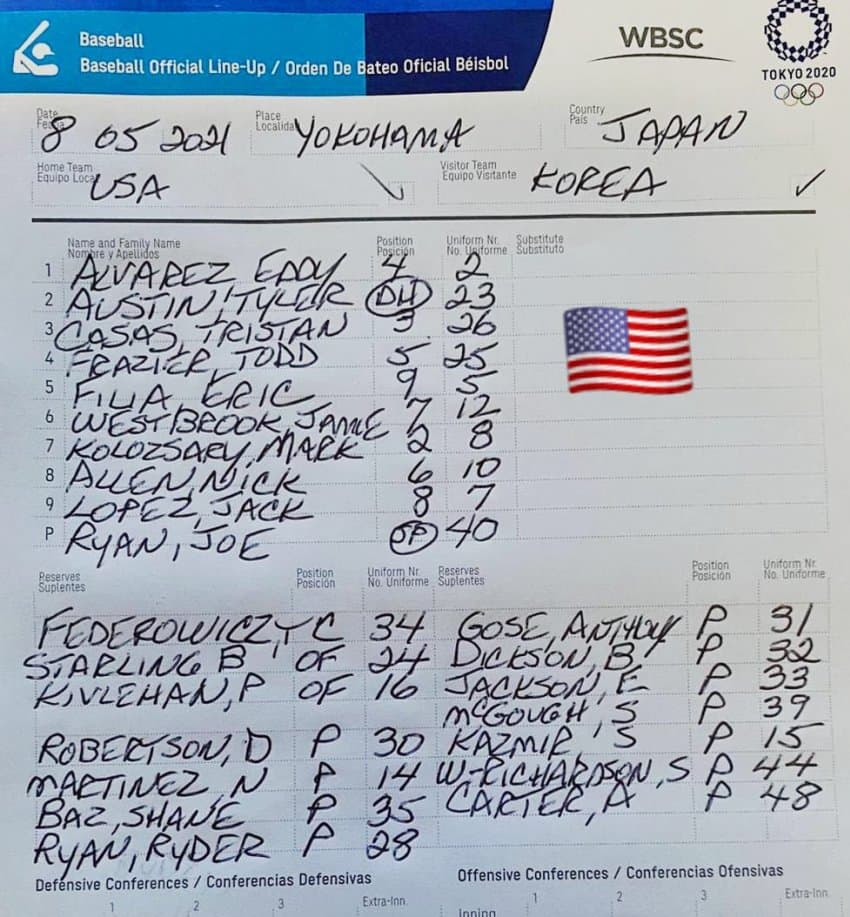 Baseball
Baseball Official Line-Up / Orden De Bateo Oficial Béisbol
WBSC
TOKYO 2020
Date Fecha 8 05 2021 Place Localidad YOKOHAMA Country País JAPAN
Home Team Equipo Local USA Visitor Team Equipo Visitante KOREA
Name and Family Name Position Uniform Nr. Substitute
Nombre y Apellidos Posición No. Uniforme Substituto
1 ALVAREZ EDDY 4 2
2 AUSTIN, TYLER DH 23
3 CASAS, TRISTAN 3 26
4 FRAZIER, TODD 5 25
5 FILIA, ERIC 9 5
6 WESTBROOK, JAMIE 7 12
7 KOLOZSARY, MARK 2 8
8 ALLEN, NICK 6 10
9 LOPEZ, JACK 8 7
P RYAN, JOE SP 40
Reserves Position Uniform Nr. Reserves Position Uniform Nr.
Suplentes Posición No. Uniforme Suplentes Posición No. Uniforme
FEDEROWICZ, T C 34 GOSE, ANTHONY P 31
STARLING B OF 24 DICKSON, B P 32
KIVLEHAN, P OF 16 JACKSON, E P 33
McGOUGH, S P 39
ROBERTSON, D P 30 KAZMIR, S P 15
MARTINEZ, N P 14 W-RICHARDSON, S P 44
BAZ, SHANE P 35 CARTER, A P 48
RYAN, RYDER P 28
Defensive Conferences / Conferencias Defensivas Offensive Conferences / Conferencias Ofensivas
1 2 3 Extra-Inn. 1 2 3 Extra-Inn.
Inning